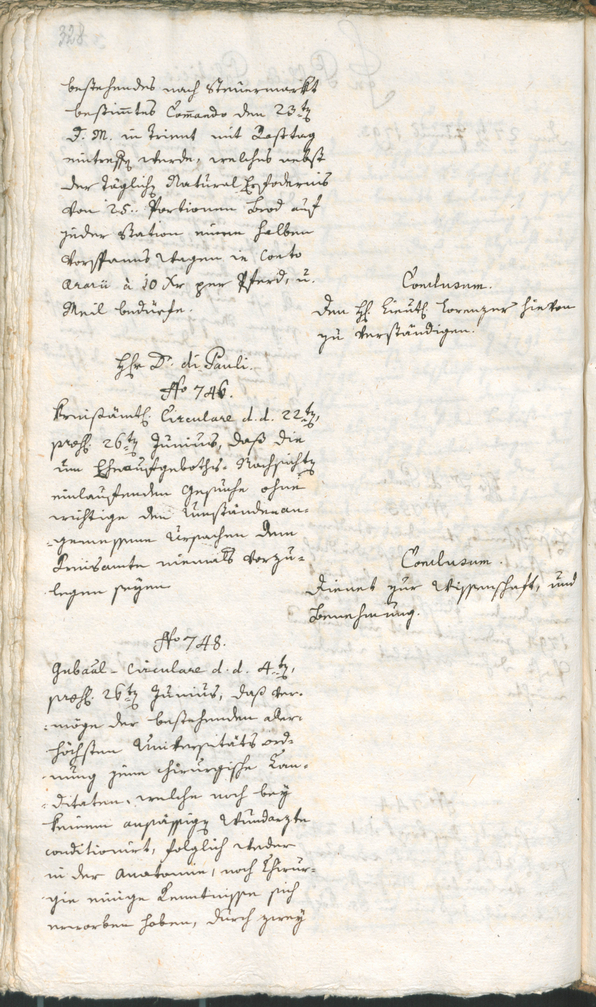 328.
bestehendes nach Steuermarkt
bestim̄tes Com̄ando den 23ten
d. M. in Trient mit Rasttag
eintreffen werde, welches nebst
der täglichen Natural Erfodernis
von 25. Portionen Brod auf
jeder Station einen halben
Vorspanns Wagen in Conto
Ararii à 10 Xr per Pferd, u.
Meil bedürfe.
Conclusum.
Den H. Lieut. Lorenzer hievon
zu verständigen.
Hr D. di Pauli.
No 746.
Kreisämtl. Circulare d. d. 22ten,
præs. 26ten Junius, daß die
um Eheaufgeboths-Nachsichten
einlaufenden Gesuche ohne
wichtige den Umständen an-
gemessene Ursachen dem
Kreisamte niemals vorzu-
legen seyen
Conclusum.
Dienet zur Wissenschaft, und
Benehmung.
No 748.
Gubaal-Circulare d. d. 4ten,
præs. 26ten Junius, daß ver-
möge der bestehenden aler-
höchsten Universitäts ord-
nung jene chirurgische Kan-
ditaten, welche noch bey
keinem ansässigen Wundarzte
conditionirt, folglich weder
in der Anatomie, noch Chirur-
gie einige Kenntnisse sich
erworben haben, durch zwey